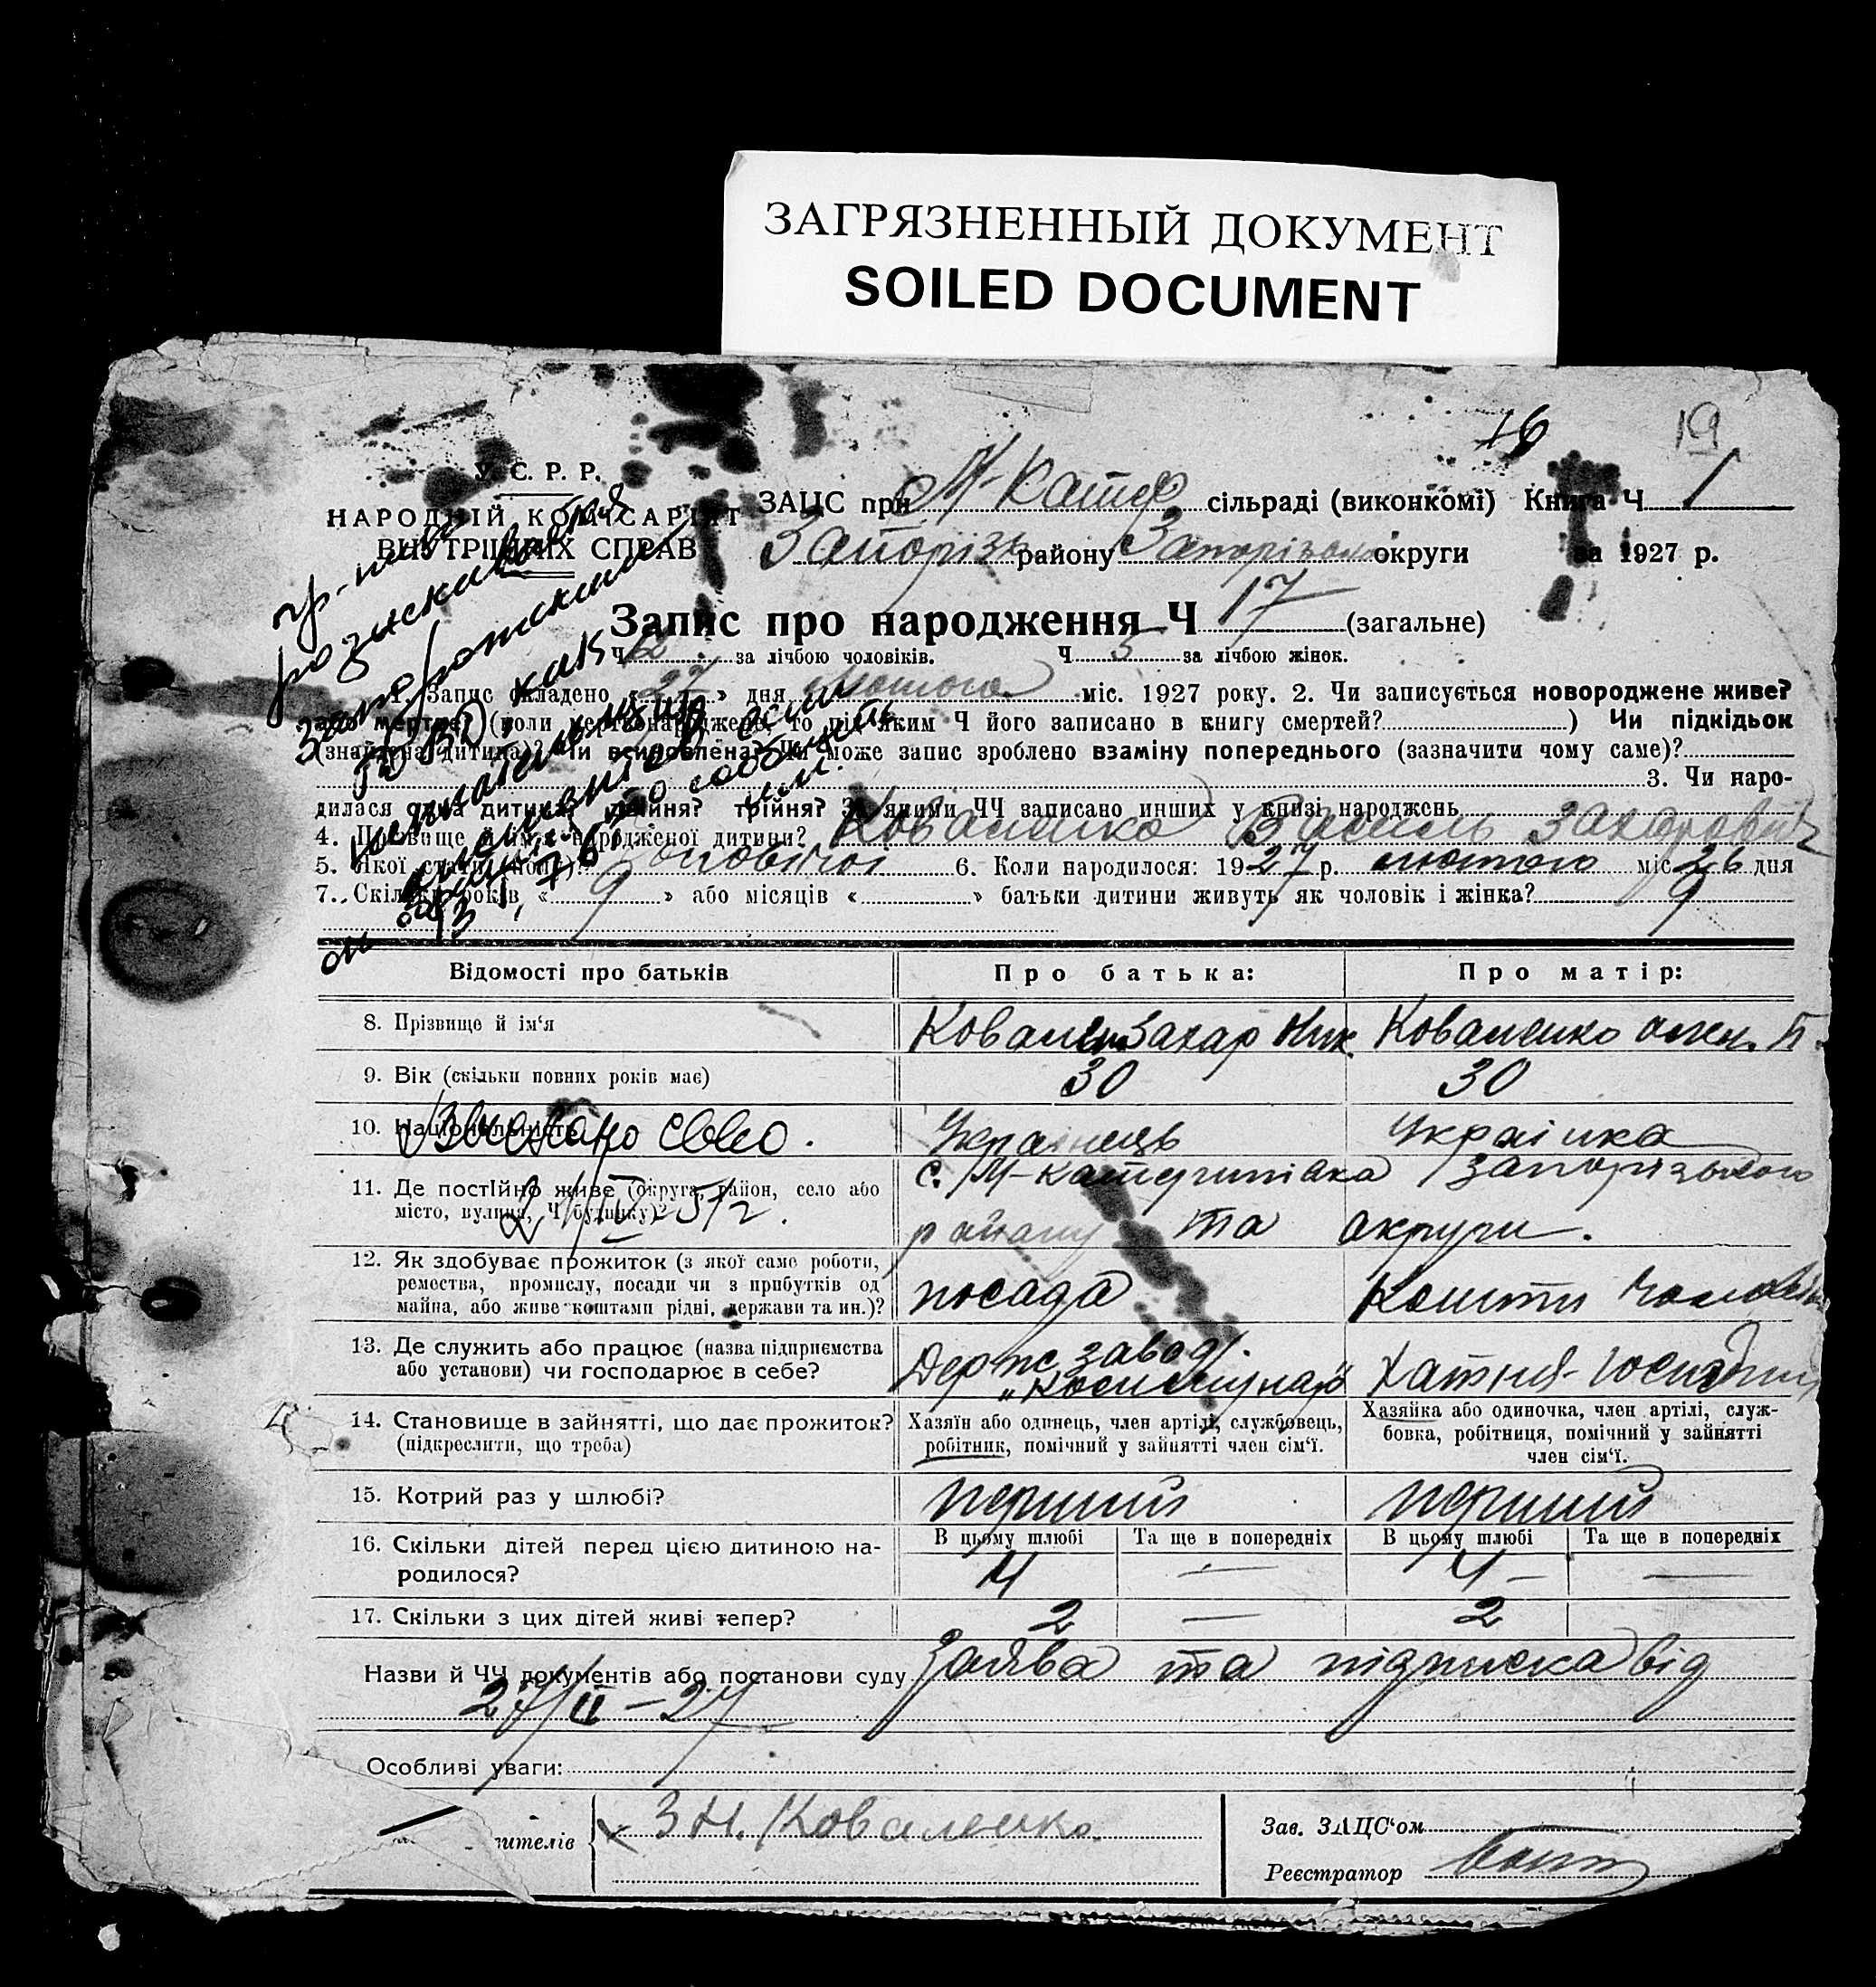 ЗАГРЯЗНЕННЫЙ ДОКУМЕНТ
SOILED DOCUMENT
16 19
У. С. Р. Р.
НАРОДНІЙ КОМІСАРІЯТ
ВНУТРІШНІХ СПРАВ
ЗАЦС при М-Катер сільраді (виконкомі) Книга Ч 1
Запоріз району Запорізьк округи за 1927 р.
Запис про народження Ч 17 (загальне)
Ч 12 за лічбою чоловіків. Ч 5 за лічбою жінок.
гр-н
разыскивается
запорожским
ГОВД, как
1. Запис складено «27» дня лютого міс. 1927 року. 2. Чи записується новороджене живе?
або мертве? (коли мертвонароджене, то під яким Ч його записано в книгу смертей? ) Чи підкідьок
(знайдена дитина)? Чи всиновлена? Чи може запис зроблено взаміну попереднього (зазначити чому саме)?
3. Чи наро-
дилася одна дитина? двійня? трійня? За якими ЧЧ записано инших у книзі народжень
4. Прізвище й ім'я народженої дитини? Коваленко Василь Захарович
5. Якої статі (полу)? чоловічої 6. Коли народилося: 1927 р. лютого міс. 26 дня
7. Скільки років « 9 » або місяців « » батьки дитини живуть як чоловік і жінка? 9
Відомості про батьків Про батька: Про матір:
8. Прізвище й ім'я Ковален Захар Ник. Коваленко П.
9. Вік (скільки повних років має) 30 30
10. Національність Українець Українка
Выслано св-во.
11. Де постійно живе (округа, район, село або
місто, вулиця, Ч будинку)? с. М-Катеринівка Запорізького
району та округи.
12. Як здобуває прожиток (з якої саме роботи,
ремества, промислу, посади чи з прибутків од
майна, або живе коштами рідні, держави та ин.)? посада Кошти чоловіка
13. Де служить або працює (назва підприємства
або установи) чи господарює в себе? Держ завод.
"Коммунар" Хатня-господин
14. Становище в зайнятті, що дає прожиток?
(підкреслити, що треба)
Хазяїн або одинець, член артілі, службовець,
робітник, помічний у зайнятті член сім'ї.
Хазяйка або одиночка, член артілі, служ-
бовка, робітниця, помічний у зайнятті
член сім'ї.
15. Котрий раз у шлюбі? перший перший
В цьому шлюбі Та ще в попередніх В цьому шлюбі Та ще в попередніх
16. Скільки дітей перед цією дитиною на-
родилося? 4 — 4 —
17. Скільки з цих дітей живі тепер? 2 — 2
Назви й ЧЧ документів або постанови суду Заява та підписка від
27/II – 27
Особливі уваги:
ителів З Н. Коваленко.
Зав. ЗАЦС'ом
Реєстратор